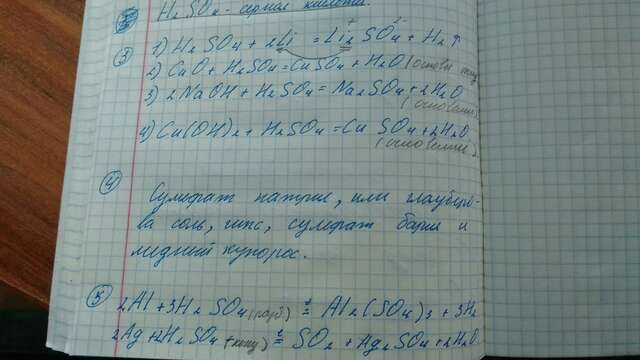 H₂SO₄ - серная кислота.
③ 1) H₂SO₄ + 2Li = Li₂⁺SO₄²⁻ + H₂↑
2) CuO + H₂SO₄ = CuSO₄ + H₂O (основн
3) 2NaOH + H₂SO₄ = Na₂SO₄ + 2H₂O
4) Cu(OH)₂ + H₂SO₄ = Cu SO₄ + 2H₂O
④
Сульфат натрия, или глаубиро-
ва соль, гипс, сульфат бария и
медный купорос.
⑤ 2Al + 3H₂SO₄ (разб) =ᵗ Al₂(SO₄)₃ + 3H₂
2Ag + 2H₂SO₄ (конц) =ᵗ SO₂ + Ag₂SO₄ + 2H₂O